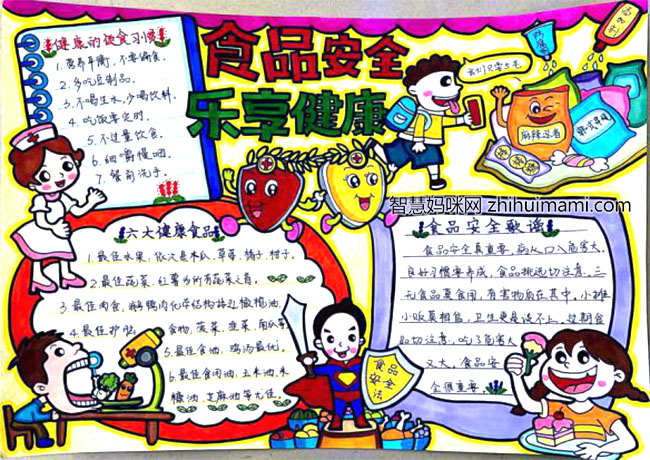 食品安全
乐享健康
健康的饮食习惯
1.营养平衡,不要偏食。
2.多吃豆制品。
3.不喝生水,少喝饮料.
4.吃饭要定时.
5.不过量饮食.
6.细嚼慢咽.
7.餐前洗手.
智慧妈咪网 zhihuimami.com
六大健康食品
1.最佳水果,依次是木瓜,草莓,橘子,柑子.
2.最佳蔬菜,红薯为所有蔬菜之首.
3.最佳肉食,鹅鸭肉化学结构接近橄榄油,
4.最佳护脑食物,菠菜,韭菜,南瓜等
5.最佳食油,鸡汤最优.
6.最佳食肉油,玉米油,米
糠油,芝麻油等尤佳.
食品安全法
食品安全歌谣
食品安全真重要,病从口入危害大,
良好习惯要养成,食品挑选切注意,三
无食品莫食用,有害物质在其中,小摊
小贩莫相食,卫生更是谈不上,过期食
品切注意,吃了危害大
又大,食品安
全很重要.